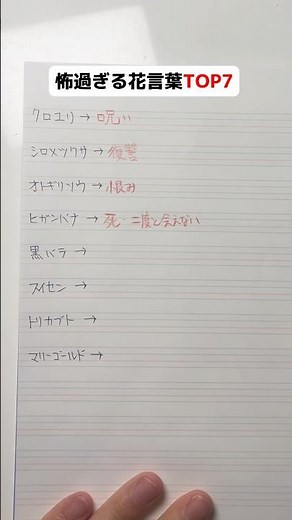 怖過ぎる花言葉TOP7
クロユリ → 呪い
シロツメクサ → 復讐
オトギリソウ → 恨み
ヒガンバナ → 死 二度と会えない
黒バラ →
スイセン →
トリカブト →
マリーゴールド →